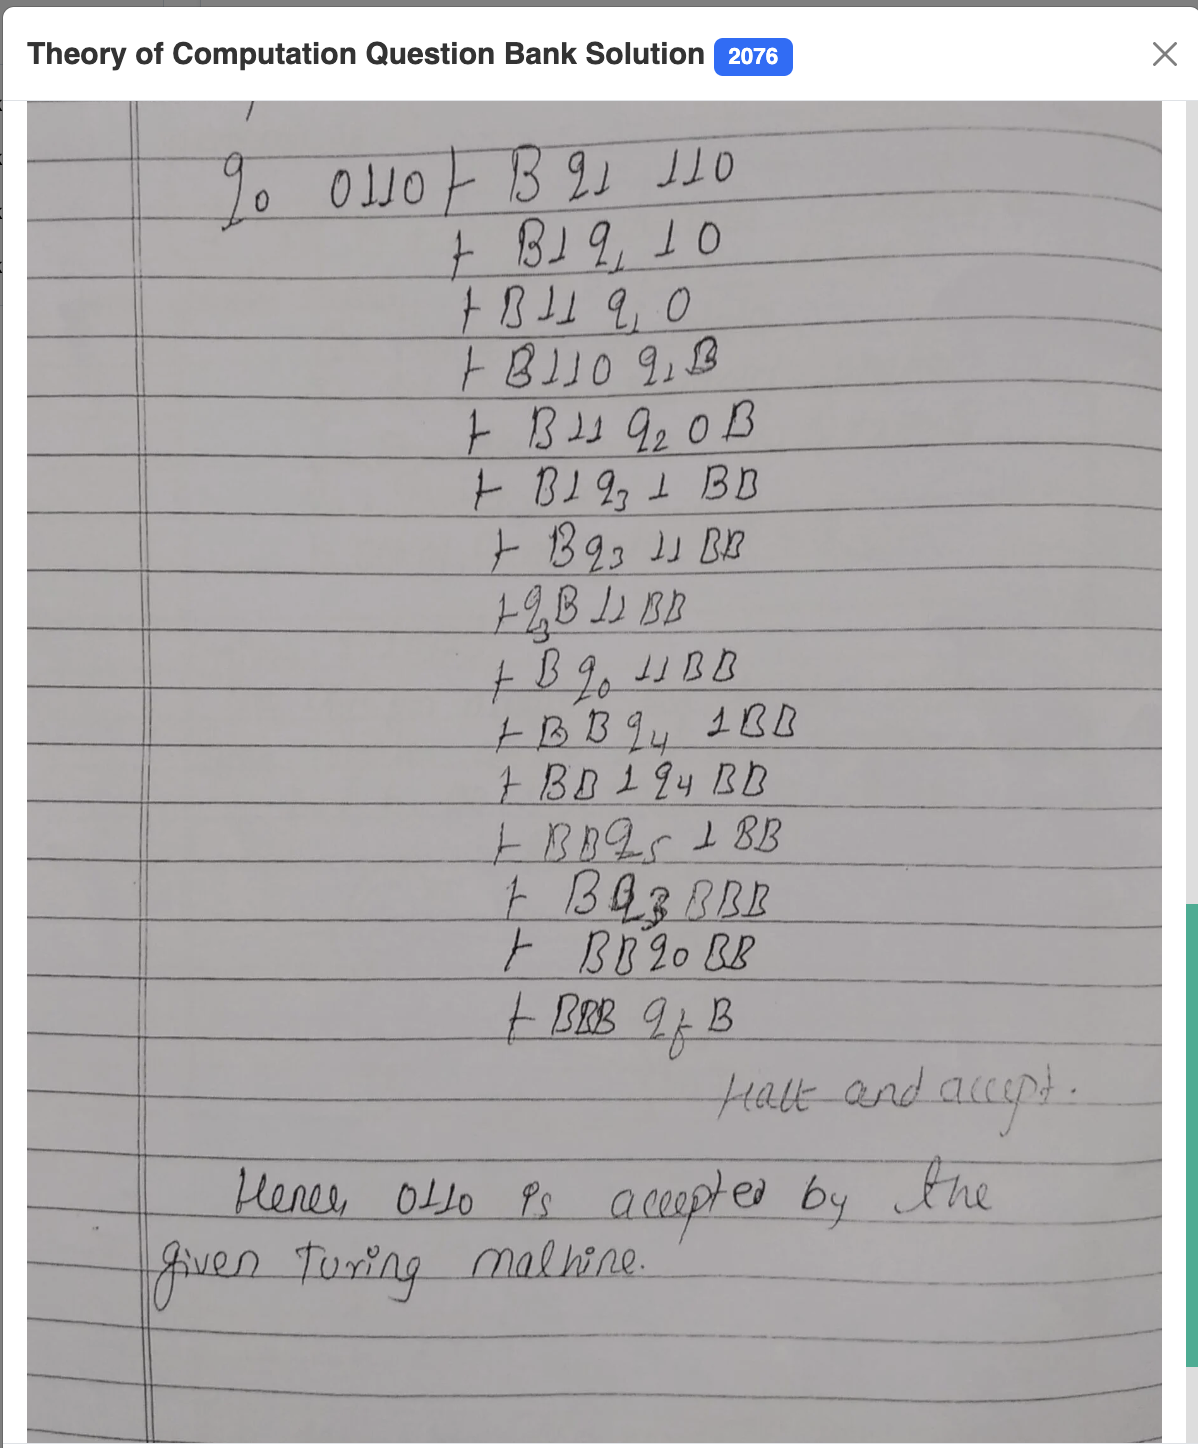 Theory of Computation Question Bank Solution 2076
q0 0110 ⊢ B q1 110
⊢ B1 q1 10
⊢ B11 q1 0
⊢ B110 q1 B
⊢ B11 q2 0B
⊢ B1 q3 1 BB
⊢ B q3 11 BB
⊢ q3 B 11 BB
⊢ B q0 11 BB
⊢ B B q4 1BB
⊢ BB 1 q4 BB
⊢ BB q5 1 BB
⊢ B q3 BBB
⊢ BB q0 BB
⊢ BBB qf B
Halt and accept.
Hence 0110 is accepted by the
given Turing malhine.